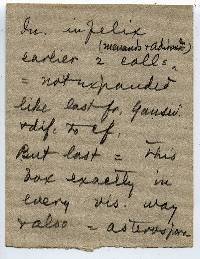 In. infelix
(menands & Adirond.)
earlier 2 colls.
= not expanded
like last fr. Gansev.
& dif. to cf.
But last = this
box exactly in
every vis. way
& also = asterospora